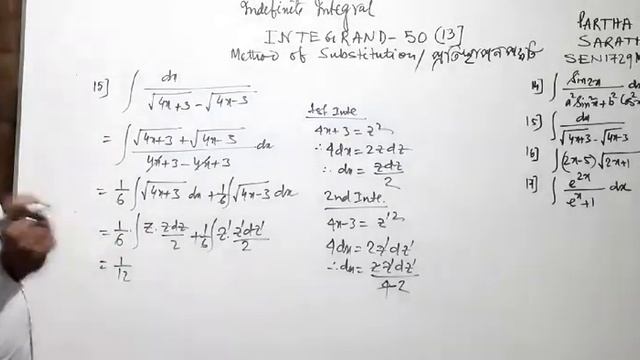 Indefinite Integral
INTEGRAND-50 (13]
Method of Substitution/ প্রতিস্থাপন পদ্ধতি
PARTHA
SARATH
SEN1729
15] ∫ dx / (√4x+3 - √4x-3)
= ∫ (√4x+3 + √4x-3) / (4x+3-4x+3) dx
= 1/6 ∫ √4x+3 dx + 1/6 ∫ √4x-3 dx
= 1/6 · ∫ z · zdz/2 + 1/6 ∫ z' z'dz'/2
= 1/12
1st Inte
4x+3 = z²
∴ 4dx = 2zdz
∴ dx = zdz/2
2nd Inte.
4x-3 = z'²
4dx = 2z'dz'
∴ dx = z'dz'/2
14] ∫ Sin2x / (a²Sin²x+b²Cos²
15] ∫ dx / (√4x+3 - √4x-3)
16] ∫ (2x-5) √2x+1
17] ∫ e^2x / (e^x+1) dx